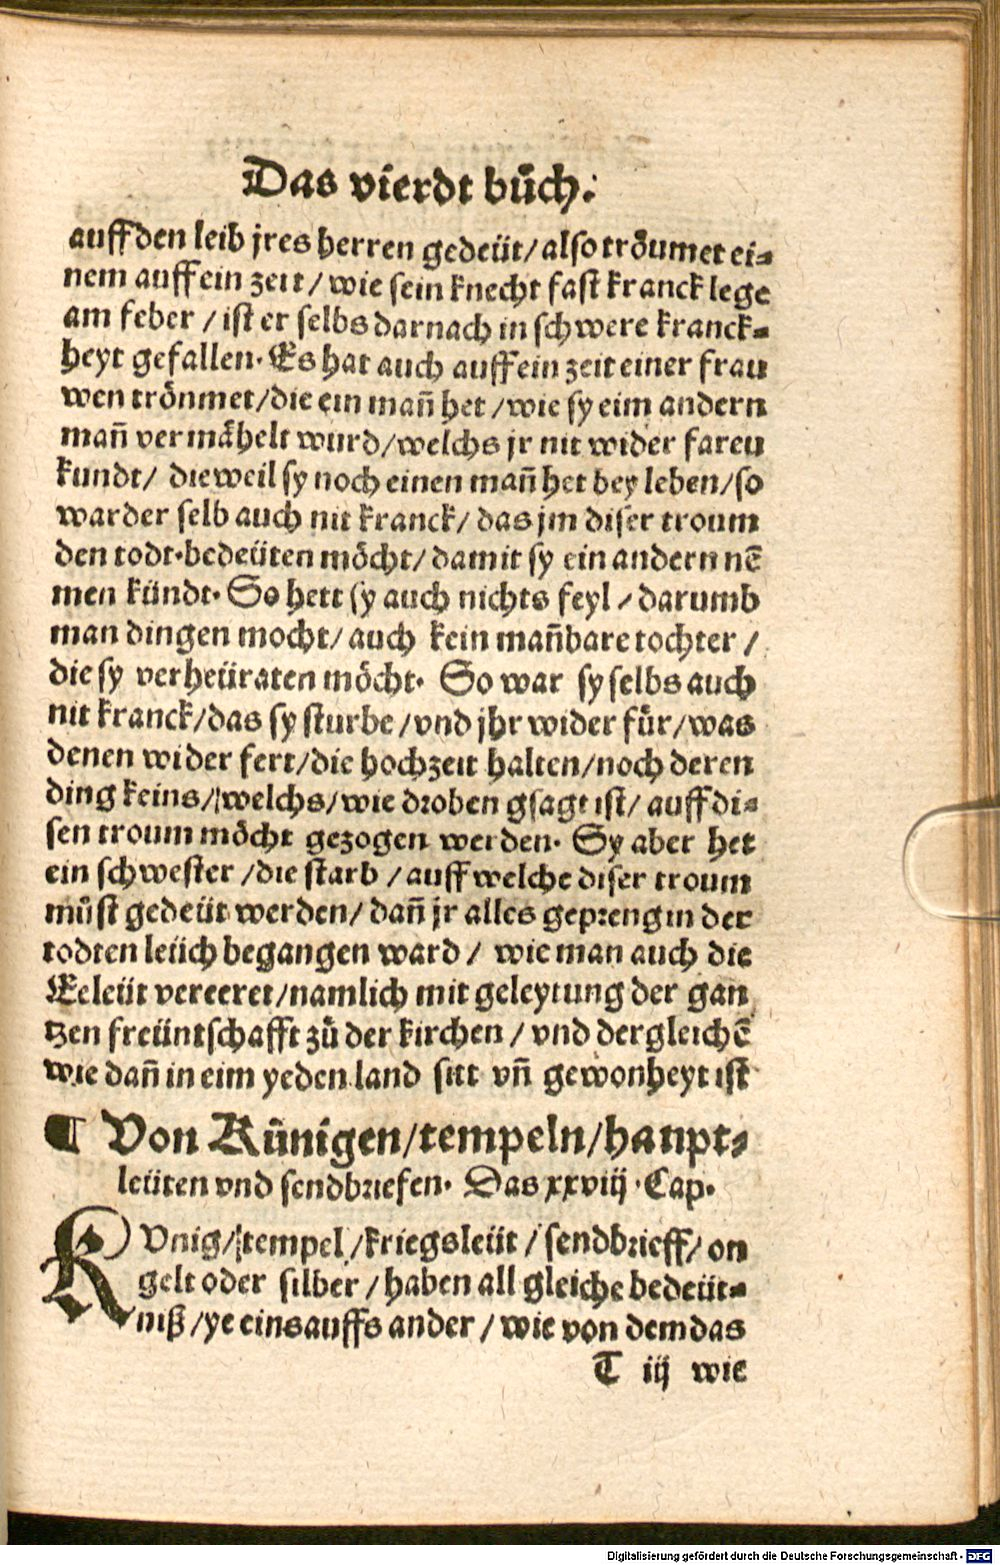 Das vierdt bůch.
auff den leib jres herren gedeüt/also tröumet ei-
nem auff ein zeit/wie sein knecht fast kranck lege
am feber/ist er selbs darnach in schwere kranck-
heyt gefallen. Es hat auch auff ein zeit einer frau
wen trönmet/die ein mañ het/wie sy eim andern
mañ vermåhelt wurd/welchs jr nit wider faren
kundt/ dieweil sy noch einen mañ het bey leben/so
war der selb auch nit kranck/das jm diser troum
den todt bedeüten möcht/damit sy ein andern nē
men kündt. So hett sy auch nichts feyl/darumb
man dingen mocht/auch kein mañbare tochter/
die sy verheüraten möcht. So war sy selbs auch
nit kranck/das sy sturbe/vnd jhr wider für/was
denen wider fert/die hochzeit halten/noch deren
ding keins/welchs/wie droben gsagt ist/auff di-
sen troum möcht gezogen werden. Sy aber het
ein schwester/die starb/auff welche diser troum
můst gedeüt werden/dañ jr alles gepreng in der
todten leüch begangen ward/ wie man auch die
Eeleüt vereeret/namlich mit geleytung der gan
tzen freüntschafft zů der kirchen/vnd dergleichē
wie dañ in eim yeden land sitt vñ gewonheyt ist
¶ Von Künigen/tempeln/hanpt-
leüten vnd sendbriefen. Das xxviij. Cap.
KVnig/tempel/kriegsleüt/sendbrieff/on
gelt oder silber/haben all gleiche bedeüt-
niß/ye eins auffs ander/wie von dem das
T iij wie
Digitalisierung gefördert durch die Deutsche Forschungsgemeinschaft - DFG